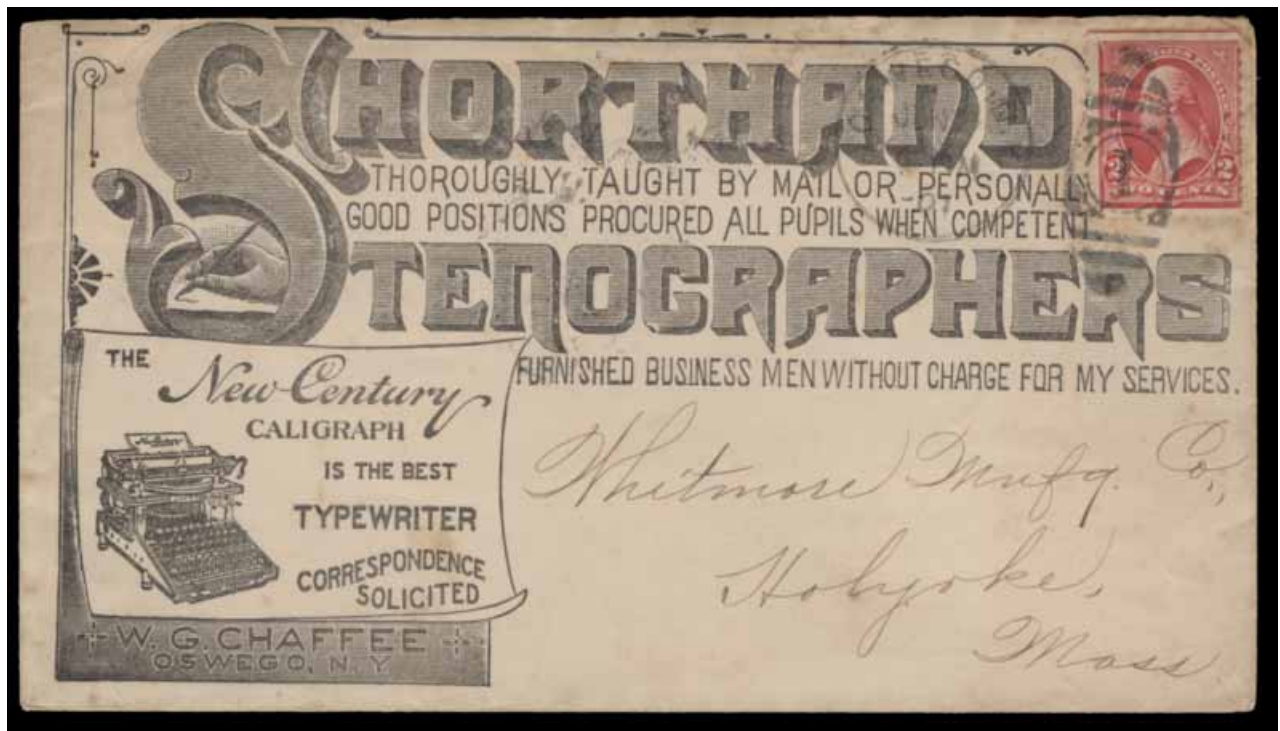 SHORTHAND
THOROUGHLY TAUGHT BY MAIL OR PERSONALLY
GOOD POSITIONS PROCURED ALL PUPILS WHEN COMPETENT
STENOGRAPHERS
FURNISHED BUSINESS MEN WITHOUT CHARGE FOR MY SERVICES.
THE
New Century
CALIGRAPH
IS THE BEST
TYPEWRITER
CORRESPONDENCE
SOLICITED
W. G. CHAFFEE
OSWEGO, N. Y
2 2
TWO CENTS
Whitmore Mnfg. Co.,
Holyoke,
Mass